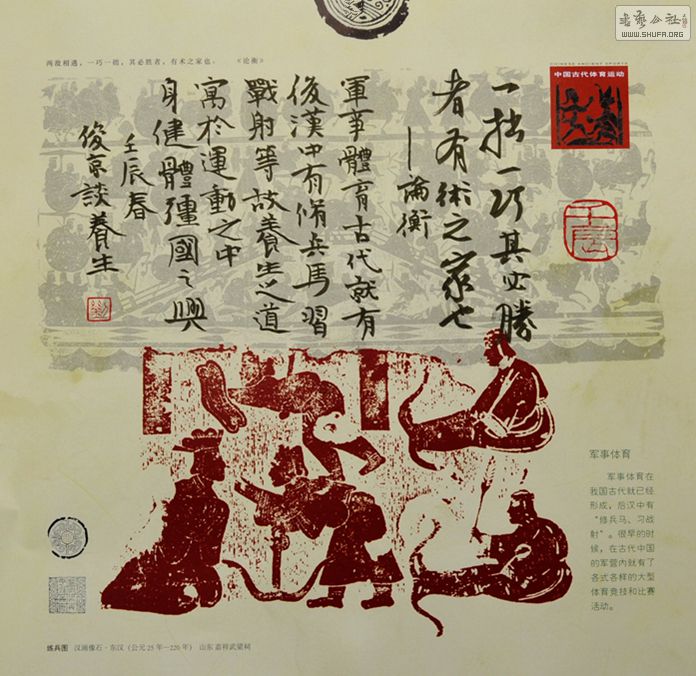 書藝公社
WWW.SHUFA.ORG
两敌相遇，一巧一拙，其必胜者，有术之家也。 《论衡》
CHINESE ANCIENT SPORTS
中国古代体育运动
一拙一巧其必勝
者有術之家也
—論衡
軍事體育古代就有
後漢中有脩兵馬習
戰射等故養生之道
寓於運動之中
身健體彊國之興
壬辰春
俊京談養生
军事体育
军事体育在
我国古代就已经
形成，后汉中有
“修兵马、习战
射”。很早的时
候，在古代中国
的军营内就有了
各式各样的大型
体育竞技和比赛
活动。
练兵图 汉画像石·东汉（公元25年—220年） 山东嘉祥武梁祠